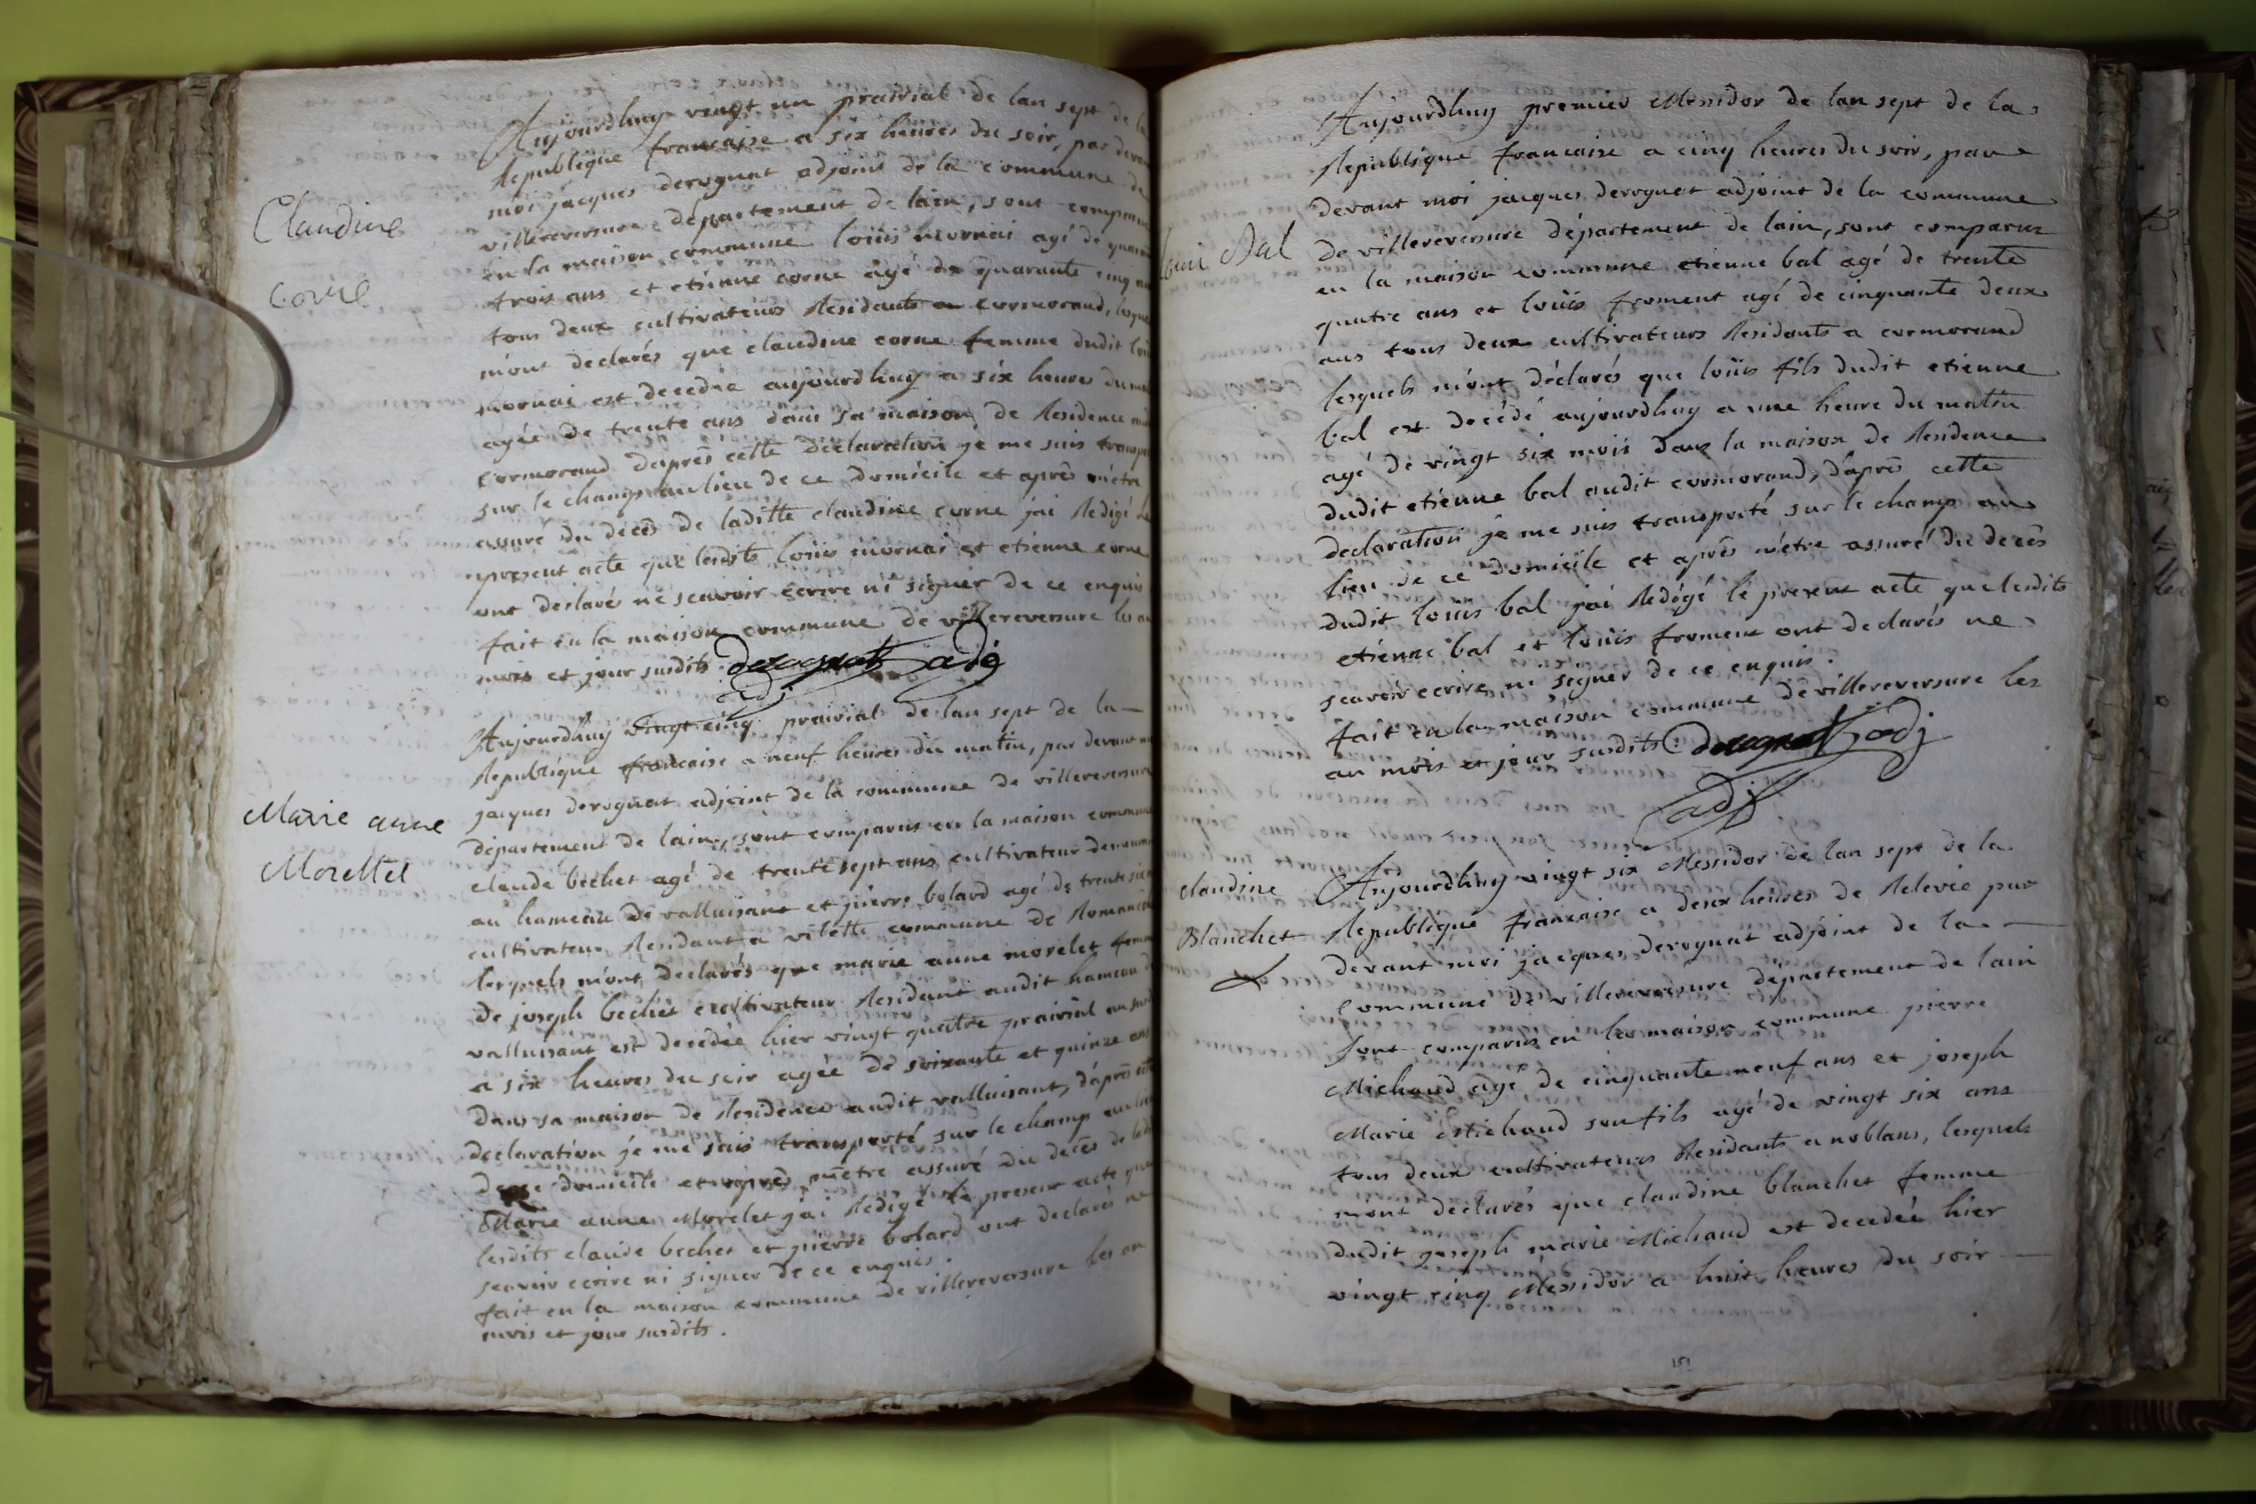 Claudine
Corne
Aujourdhuy vingt un prairial de lan sept de la
Republique francaise a six heures du soir, par devant
moi jacques derognat adjoint de la commune de
villereversure département de lain, sont comparus
en la maison commune louis mornai agé de quarante
trois ans et etienne corne agé de quarante cinq ans
tous deux cultivateurs Residants a cormorand, lesquels
m'ont declarés que claudine corne femme dudit louis
mornai est decedée aujourdhuy a six heures du matin
agée de trente ans dans sa maison de Residence audit
Cormorand daprès cette déclaration je me suis transporté
sur le champ au lieu de ce domicile et après m'être
assuré du décès de ladite claudine corne j'ai Redigé le
present acte que lesdits louis mornai et etienne corne
ont declarés ne scavoir ecrire ni signer de ce enquis
fait en la maison commune de villereversure les an
mois et jour susdits. derognat adj
adj
Marie anne
Morellet
Aujourdhuy vingt cinq prairial de lan sept de la
Republique francaise a neuf heures du matin, par devant moi
jacques derognat adjoint de la commune de villereversure
département de lain, sont comparus en la maison commune
claude bechet agé de trente sept ans cultivateur demeurant
au hameau de valluisant et pierre bolard agé de trente
cultivateur Residant a vilette commune de Romaneche
lesquels m'ont declarés que marie anne morelet femme
de joseph bechet cultivateur Residant audit hameau de
valluisant est decedée hier vingt quatre prairial
a six heures du soir agée de soixante et quinze ans
dans sa maison de Residence audit valluisant, d'après cette
declaration je me suis transporté sur le champ au lieu
de ce domicile et après m'être assuré du décès de ladite
Marie anne Morelet j'ai Redigé le present acte que
lesdits claude bechet et pierre bolard ont declarés ne
scavoir ecrire ni signer de ce enquis.
fait en la maison commune de villereversure les an
mois et jour susdits.
Loui Bal
Aujourdhuy premier Messidor de lan sept de la
Republique francaise a cinq heures du soir, par
devant moi jacques derognat adjoint de la commune
de villereversure département de lain, sont comparus
en la maison commune etienne bal agé de trente
quatre ans et louis froment agé de cinquante deux
ans tous deux cultivateurs Residants a cormorand
lesquels m'ont déclarés que louis fils dudit etienne
bal est decédé aujourdhuy a une heure du matin
agé de vingt six mois dans la maison de Residence
dudit etienne bal audit cormorand, d'après cette
declaration je me suis transporté sur le champ au
lieu de ce domicile et après m'être assuré du décès
dudit louis bal j'ai Redigé le present acte que lesdits
etienne bal et louis froment ont declarés ne
scavoir ecrire ni signer de ce enquis.
fait en la maison commune de villereversure les
an mois et jour susdits. derognat adj
adj
claudine
Blanchet
Aujourdhuy vingt six Messidor de lan sept de la
Republique francaise a deux heures de Relevée par
devant moi jacques derognat adjoint de la
Commune de villereversure département de lain
sont comparus en la maison commune pierre
Michaud agé de cinquante neuf ans et joseph
Marie Michaud son fils agé de vingt six ans
tous deux cultivateurs Residants a noblans, lesquels
m'ont déclarés que claudine blanchet femme
dudit joseph marie Michaud est decedée hier
vingt cinq Messidor a huit heures du soir
151